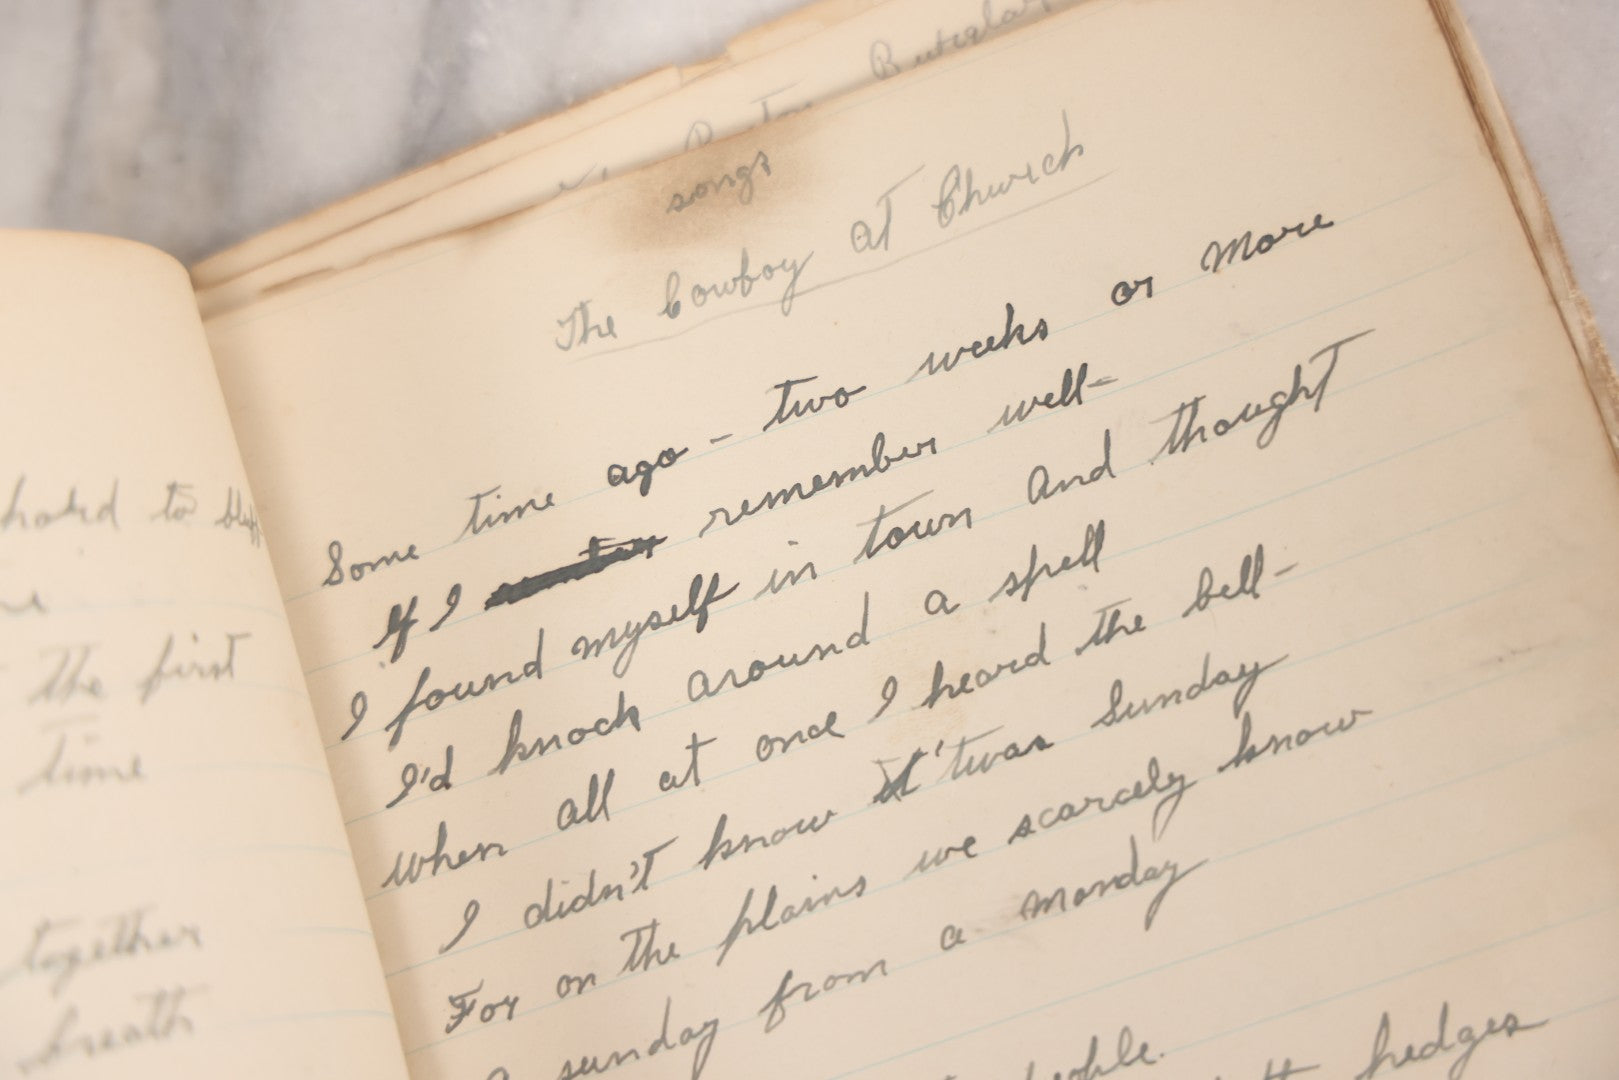 songs
The Cowboy at Church
Some time ago - two weeks or more
If I remember well-
I found myself in town and thought
I'd knock around a spell
When all at once I heard the bell-
I didn't know it 'twas Sunday
For on the plains we scarcely know
a sunday from a monday
people.
hedges
to bluff
the first
time
together
breath